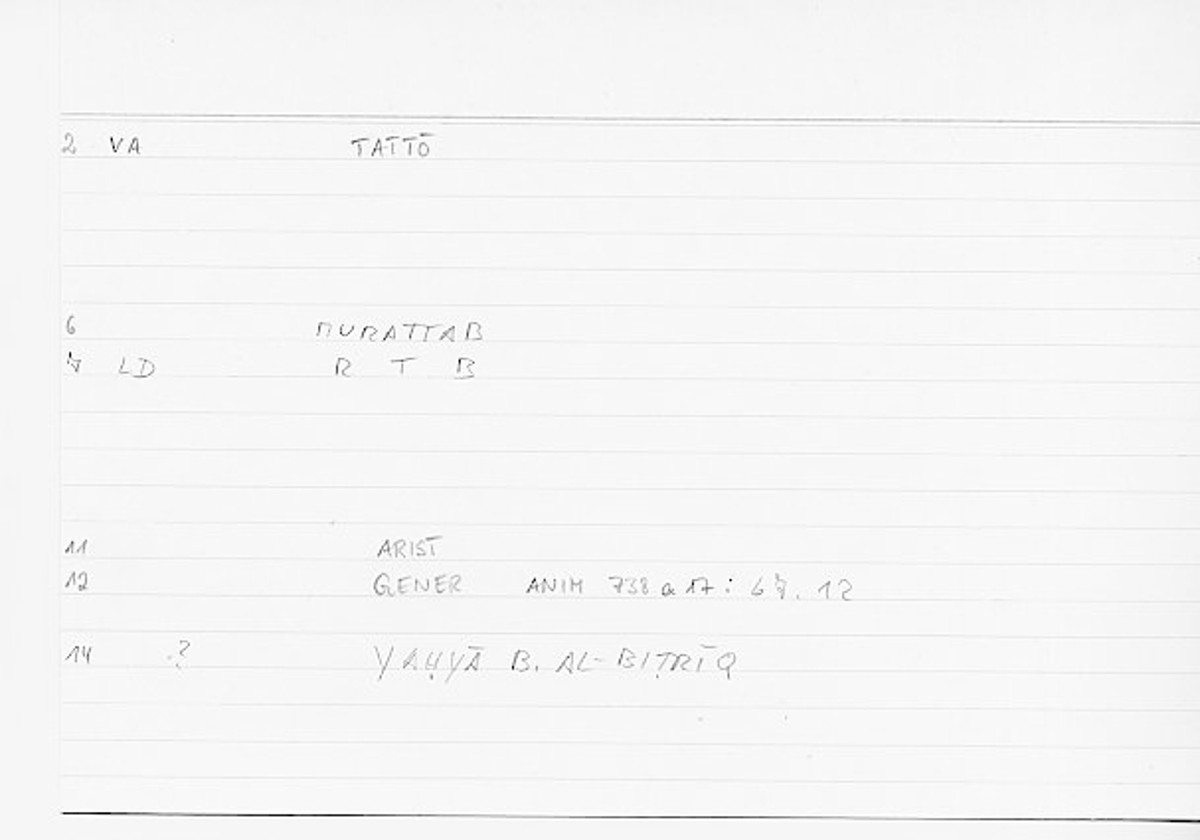 2 VA TATTŌ
6 MURATTAB
7 LD R T B
11 ARIST
12 GENER ANIM 738 a 17 : 67. 12
14 .? YAḤYĀ B. AL-BIṬRĪQ